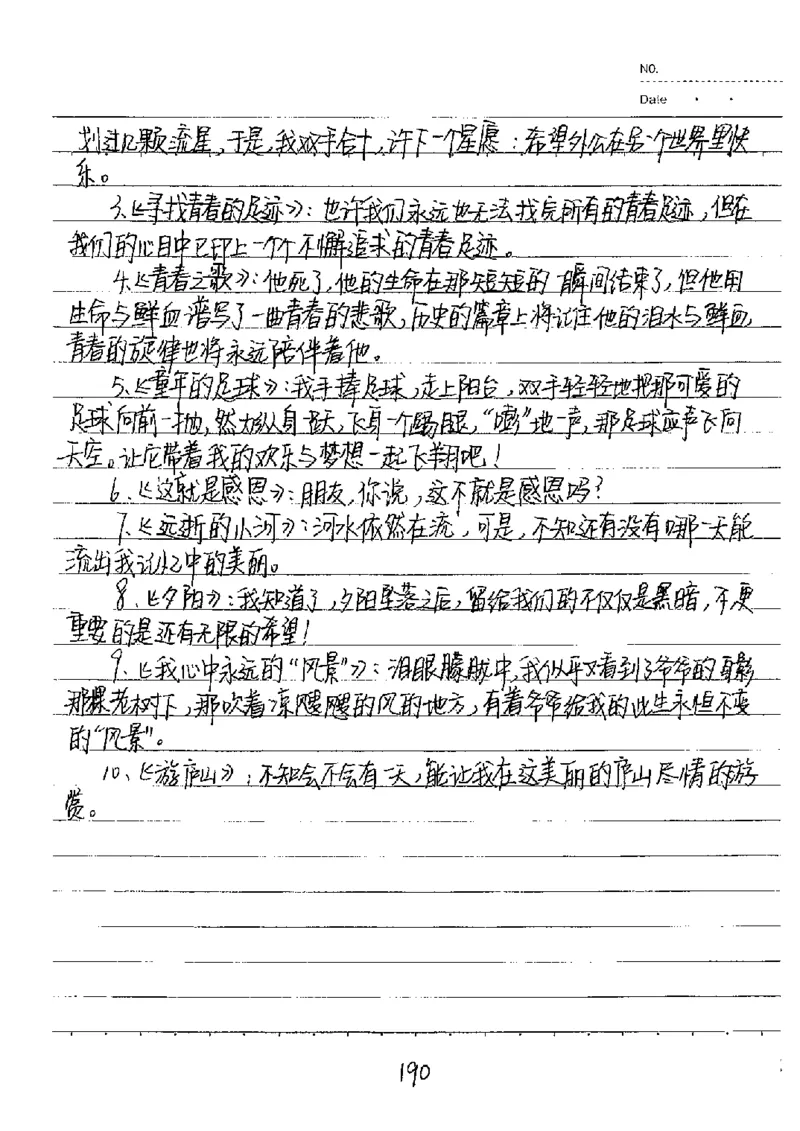 NO.
Date
划过几颗流星,于是,我双手合十,许下一个星愿:希望外公在另一个世界里快
乐。
3、《寻找青春的足迹》:也许我们永远也无法找完所有的青春足迹,但在
我们的心目中已印上一个个不懈追求的青春足迹。
4、《青春之歌》:他死了,他的生命在那短短的一瞬间结束了,但他用
生命与鲜血谱写了一曲青春的悲歌,历史的篇章上将记住他的泪水与鲜血,
青春的旋律也将永远陪伴着他。
5、《童年的足球》:我手捧足球,走上阳台,双手轻轻地把那可爱的
足球向前一抛,然后纵身一跃,飞身一个踢腿,“嘭”地一声,那足球应声飞向
天空。让它带着我的欢乐与梦想一起飞翔吧!
6、《这就是感恩》:朋友,你说,这不就是感恩吗?
7、《远逝的小河》:河水依然在流,可是,不知还有没有哪一天能
流出我记忆中的美丽。
8、《夕阳》:我知道了,夕阳坠落之后,留给我们的不仅仅是黑暗,不,更
重要的是还有无限的希望!
9、《我心中永远的“风景”》:泪眼朦胧中,我似乎又看到了爷爷的身影
那棵老树下,那吹着凉飕飕的风的地方,有着爷爷给我的此生永恒不变
的“风景”。
10、《游庐山》:不知会不会有一天,能让我在这美丽的庐山尽情的游
赏。
190